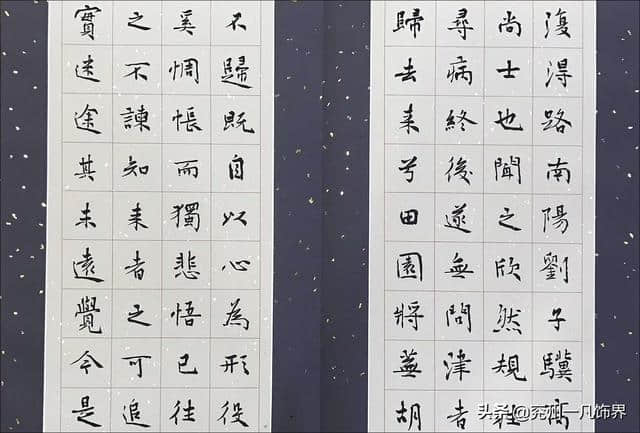 復得路南陽劉子驥高
尚士也聞之欣然規往
尋病終後遂無問津者
歸去来兮田園將蕪胡
不歸既自以心為形役
奚惆悵而獨悲悟已往
之不諫知来者之可追
實迷途其未遠覺今是
头条@兖州一凡饰界